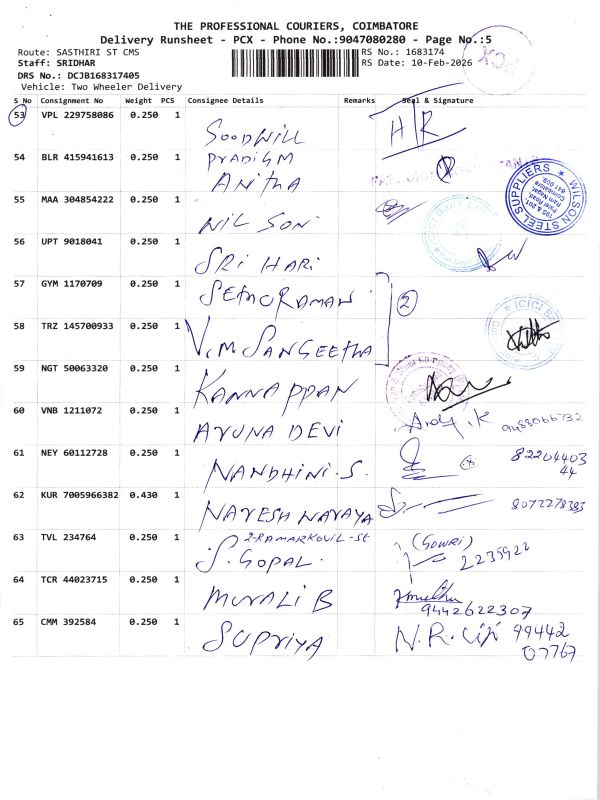 THE PROFESSIONAL COURIERS, COIMBATORE
Delivery Runsheet - PCX - Phone No.:9047080280 - Page No.:5
Route: SASTHIRI ST CMS
RS No.: 1683174
Staff: SRIDHAR
RS Date: 10-Feb-2026
DRS No.: DCJB168317405
Vehicle: Two Wheeler Delivery
PCX
S No Consignment No Weight PCS Consignee Details Remarks Seal & Signature
53 VPL 229758086 0.250 1
SOODWILL
H R
54 BLR 415941613 0.250 1
PradigM
ANITHA
WILSON STEEL SUPPLIERS
55 MAA 304854222 0.250 1
WILSON
56 UPT 9018041 0.250 1
SRI HARI
57 GYM 1170709 0.250 1
SETHURAMAN
2
58 TRZ 145700933 0.250 1
V.M. SANGEETHA
ICICI
59 NGT 50063320 0.250 1
KANNAPPAN
60 VNB 1211072 0.250 1
ARUNA DEVI
9488066732
61 NEY 60112728 0.250 1
NANDHINI.S.
82204403
44
62 KUR 7005966382 0.430 1
NAVESH NARAYA
8072278383
63 TVL 234764 0.250 1
2-RAMARKOVIL-St
S. GOPAL.
(GOWRI)
2235922
64 TCR 44023715 0.250 1
MURALI B
9442622307
65 CMM 392584 0.250 1
SUPRIYA
N.R. 99442
07767